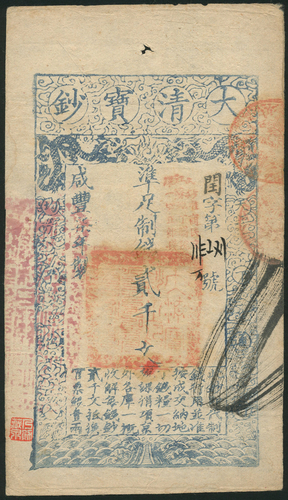 大清寶鈔
閏字第
號
準足制錢貳千文
咸豐年製
即代制
錢行用並准
按成交納地
丁錢糧一切
稅課捐項京
外各庫一概
收解每錢鈔
貳千文抵換
官票銀壹兩